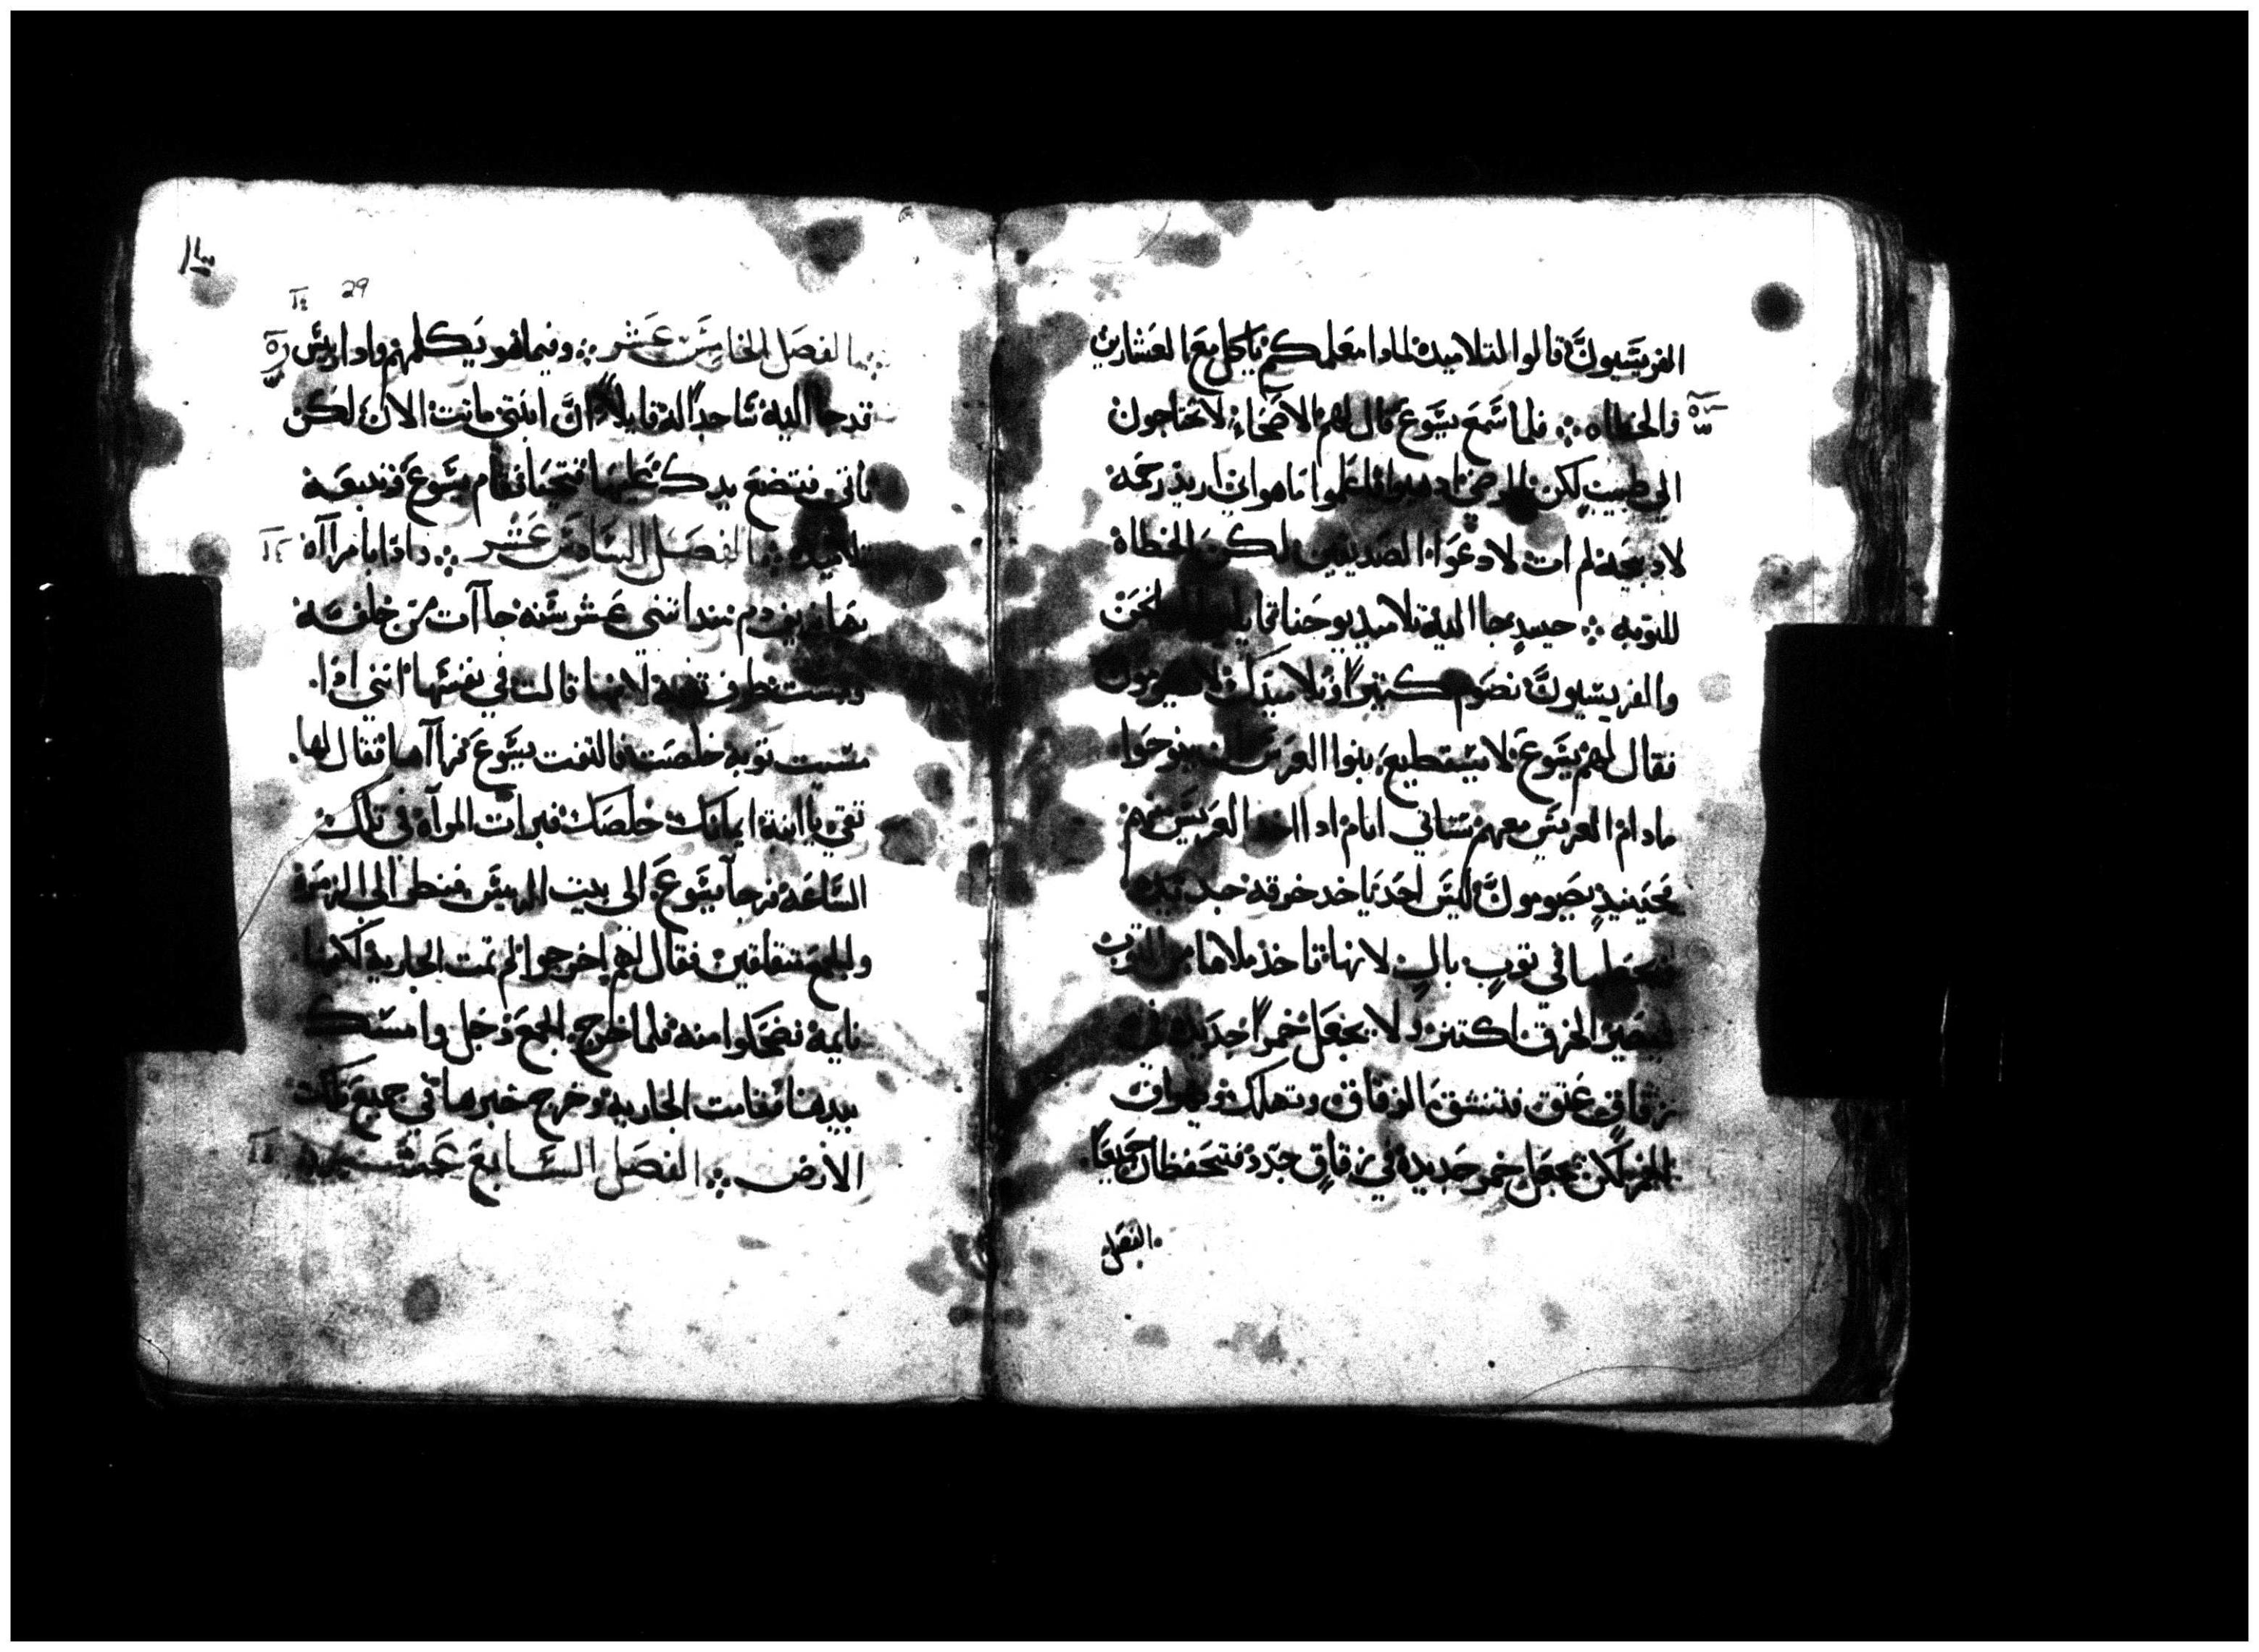 الفريسيون قالوا لتلاميذه لماذا معلمكم ياكل مع العشارين
والخطاه ۞ فلما سمع يسوع قال لهم الاصحاء لا يحتاجون
الي طبيب لكن المرضي اذهبوا فاعلموا ما هو اني اريد رحمه
لا ذبيحه لم ات لادعوا الصديقين لكن الخطاة
للتوبه ۞ حينيدٍ جاا اليه تلاميد يوحنا نحن
والفريسيون نصوم كتيراً وتلاميدك لا يصومون
فقال لهم يسوع لا يستطيع بنوا العرس ان ينوحوا
مادام العريس معهم ستاتي ايام ادا اخد العريس عنهم
فحينيدٍ يصومون ليس احد ياخد خرقه جديده
فيجعلها في توبٍ بالٍ لانها تاخذ ملاها من التوب
فيصير الخرق اكتر ولا يجعل خمراً جديده في
زقاقٍ عتق فتنشق الزقاق وتهلك وتهراق
الخمر لكن يجعل خمر جديده في زقاقٍ جدد فتحفظان جميعاً
الفصل
29
الفصل الخامس عشر ۞ وفيما هو يكلمهم واذا رييس
قد جاا اليه ساجداً له قايلاً ان ابنتي ماتت الان لكن
تاتي فتضع يدك عليها فتحيا فقام يسوع وتبعه
تلاميده ۞ الفصل السادس عشر ۞ واذا بامراآه
بها نزيف دم مند اتني عشر سنه جاآت من خلفه
ومست طرف توبه لانها قالت في نفسها انني ادا
مسيت توبه خلصت فالتفت يسوع فراآها فقال لها
تقي يا ابنة ايمانك خلصك فبرات المرآه في تلك
الساعه فجآ يسوع الى بيت الرييس فنظر الى الزمره
والجمع متقلقين فقال لهم اخرجوا لم تمت الجاريه لكنها
نايمه فضحكوا منه فلما خرج الجمع دخل وامسك
بيدها فقامت الجاريه وخرج خبرها في جميع تلك
الارض ۞ الفصل السابع عشر